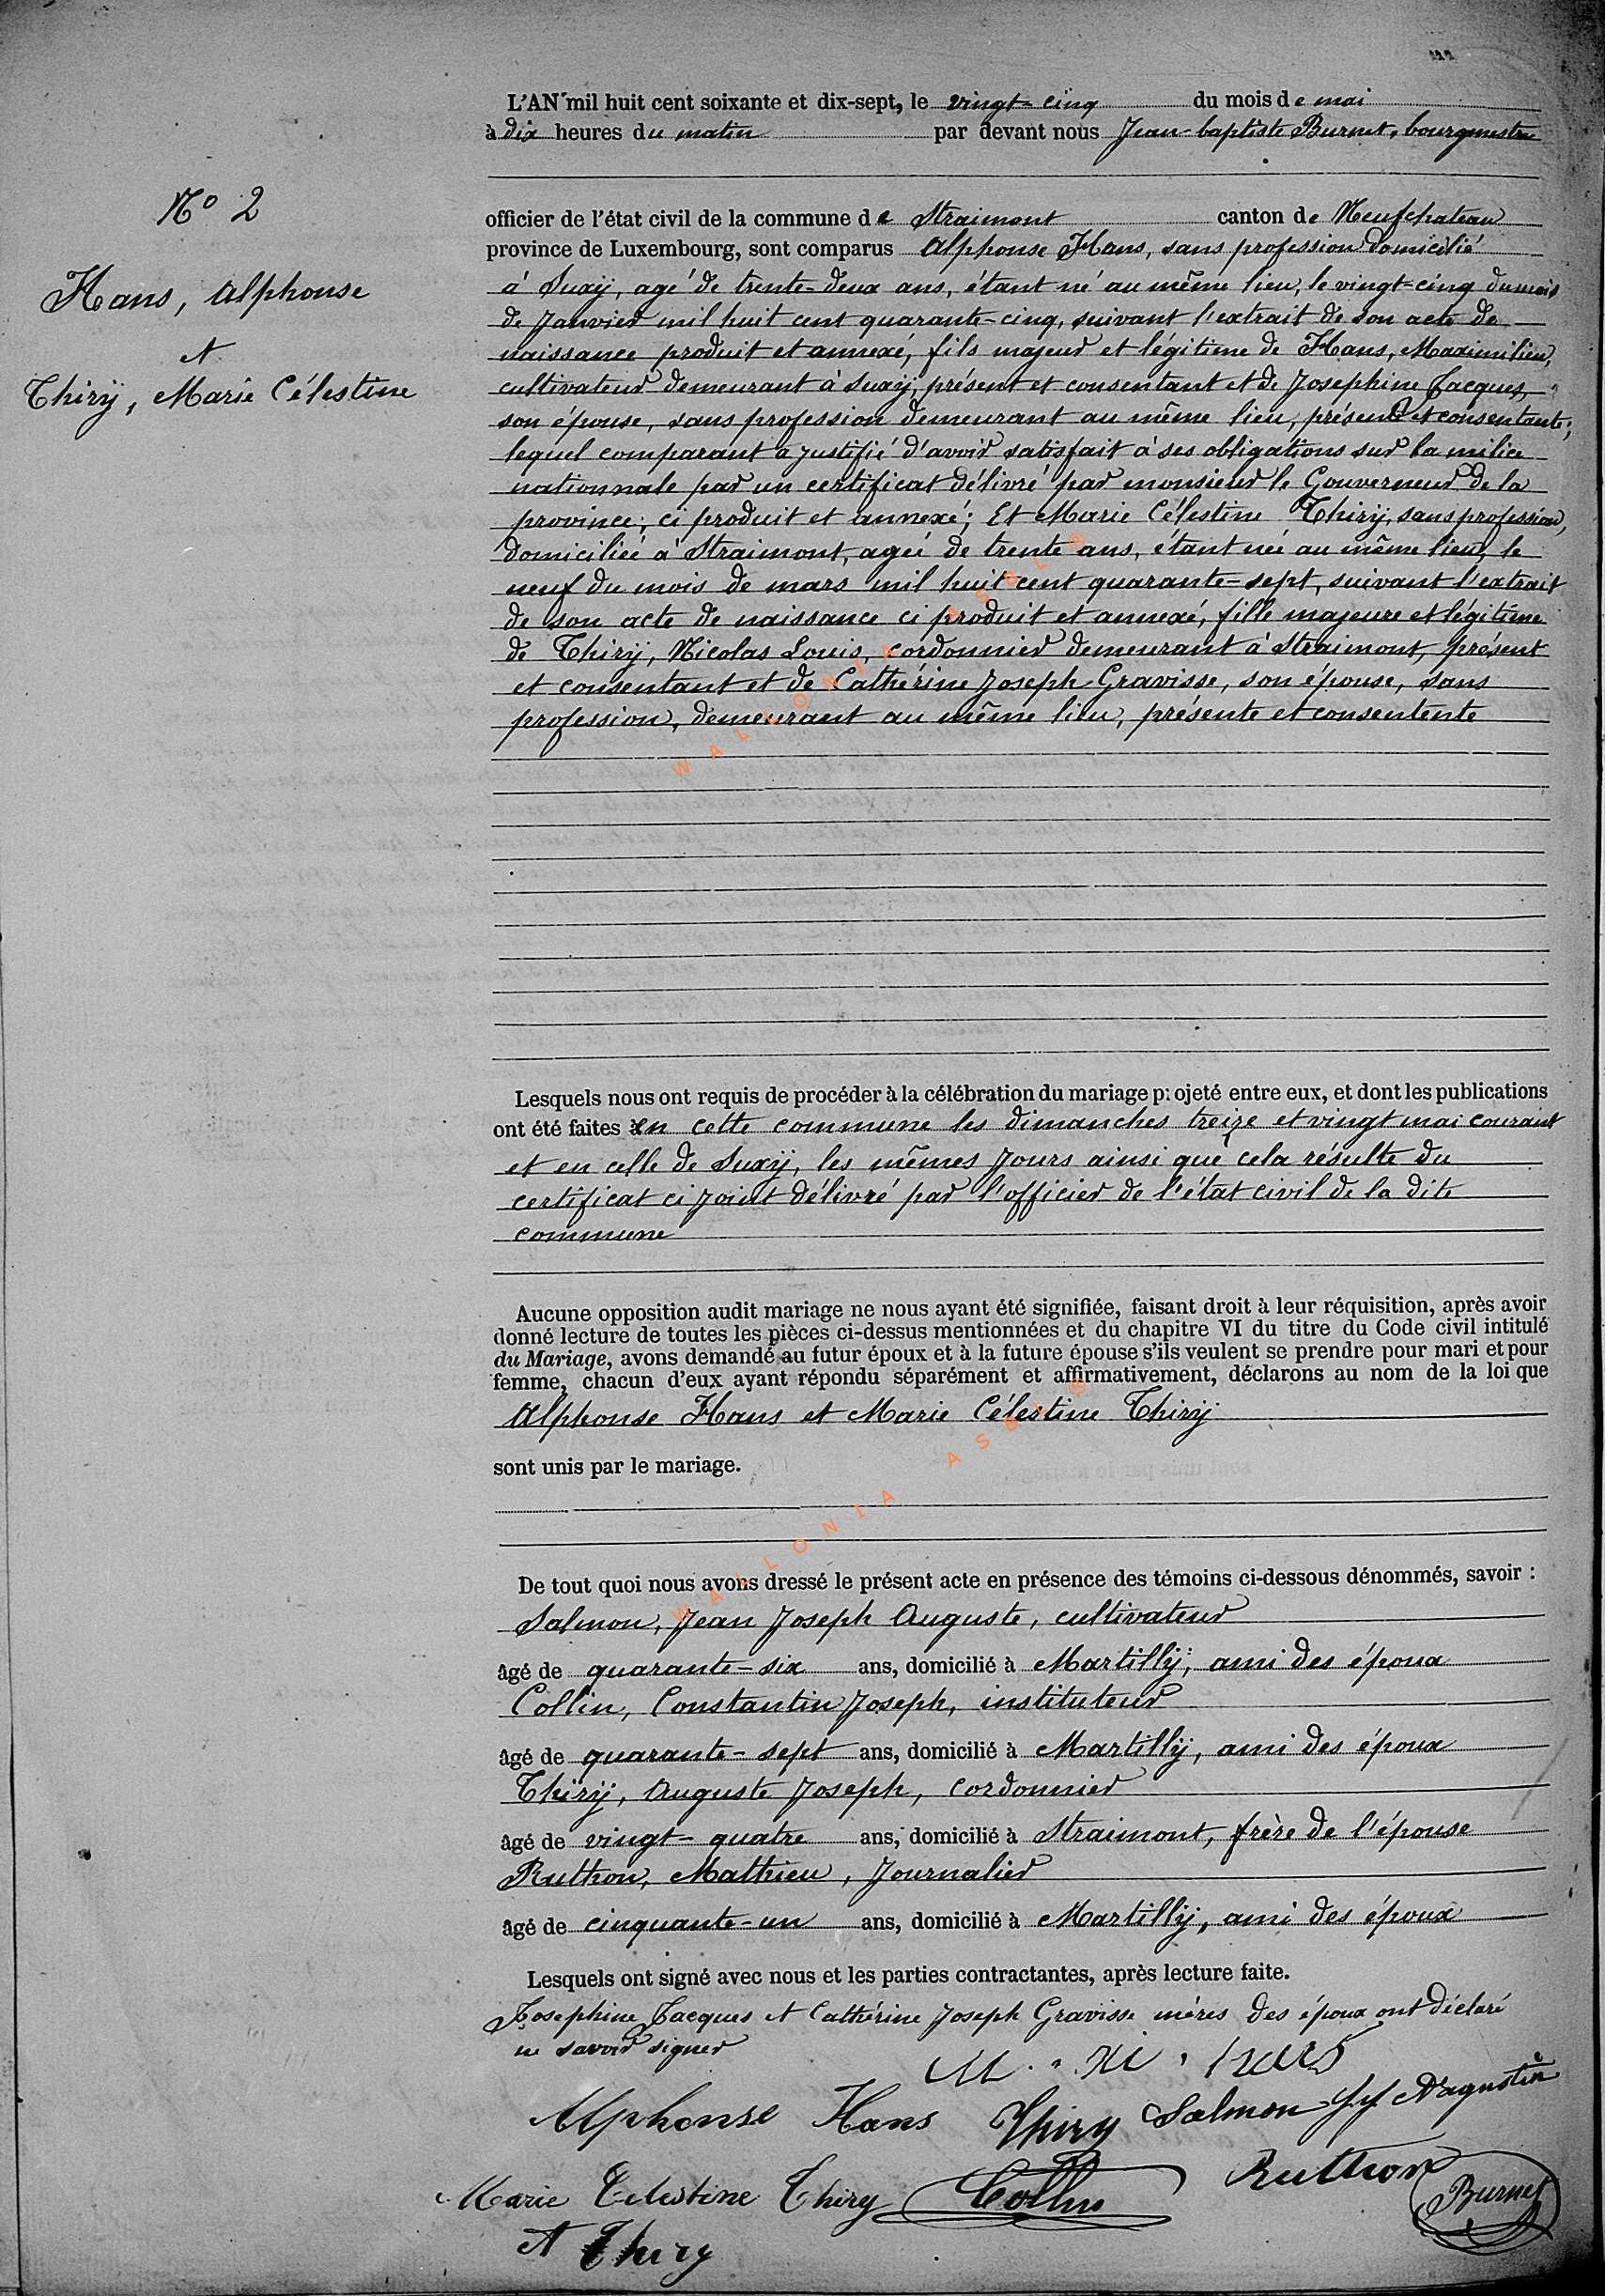 L'AN mil huit cent soixante et dix-sept, le vingt-cinq du mois de mai
à dix heures du matin par devant nous Jean-baptiste Burnet, bourgmestre
N° 2
officier de l'état civil de la commune de Straimont canton de Neufchateau
province de Luxembourg, sont comparus Alphonse Hans, sans profession domicilié
Hans, Alphonse
et
Thirÿ, Marie Célestine
à Suxÿ, agé de trente-deux ans, étant né au même lieu, le vingt-cinq du mois
de Janvier mil huit cent quarante-cinq, suivant l'extrait de son acte de
naissance produit et annexé, fils majeur et légitime de Hans, Maximilien,
cultivateur demeurant à Suxÿ, présent et consentant et de Josephine Jacques,
son épouse, sans profession demeurant au même lieu, présente et consentante;
lequel comparant a justifié d'avoir satisfait à ses obligations sur la milice
nationnale par un certificat délivré par monsieur le Gouverneur de la
province, ci produit et annexé; Et Marie Célestine Thirÿ, sans profession,
domiciliée à Straimont, agée de trente ans, étant née au même lieu, le
neuf du mois de mars mil huit cent quarante-sept, suivant l'extrait
de son acte de naissance ci produit et annexé, fille majeure et légitime
de Thirÿ, Nicolas Louis, cordonnier demeurant à Straimont, présent
et consentant et de Cathérine Joseph Gravisse, son épouse, sans
profession, demeurant au même lieu, présente et consentente
WALLONIA ASBL ©
Lesquels nous ont requis de procéder à la célébration du mariage projeté entre eux, et dont les publications
ont été faites en cette commune les dimanches treize et vingt mai courant
et en celle de Suxÿ, les mêmes Jours ainsi que cela résulte du
certificat ci joint délivré par l'officier de l'état civil de la dite
commune
Aucune opposition audit mariage ne nous ayant été signifiée, faisant droit à leur réquisition, après avoir
donné lecture de toutes les pièces ci-dessus mentionnées et du chapitre VI du titre du Code civil intitulé
du Mariage, avons demandé au futur époux et à la future épouse s'ils veulent se prendre pour mari et pour
femme, chacun d'eux ayant répondu séparément et affirmativement, déclarons au nom de la loi que
Alphonse Hans et Marie Célestine Thirÿ
sont unis par le mariage.
WALLONIA ASBL ©
De tout quoi nous avons dressé le présent acte en présence des témoins ci-dessous dénommés, savoir :
Salmon, Jean Joseph Auguste, cultivateur
âgé de quarante-six ans, domicilié à Martillÿ, ami des époux
Collin, Constantin Joseph, instituteur
âgé de quarante-sept ans, domicilié à Martillÿ, ami des époux
Thirÿ, Auguste Joseph, cordonnier
âgé de vingt-quatre ans, domicilié à Straimont, frère de l'épouse
Ruthon, Mathieu, Journalier
âgé de cinquante-un ans, domicilié à Martillÿ, ami des époux
Lesquels ont signé avec nous et les parties contractantes, après lecture faite.
Josephine Jacques et Cathérine Joseph Gravisse mères des époux ont déclaré
ne savoir signer
Alphonse Hans Thiry Salmon
Marie Celestine Thiry Collin Ruthon Burnet
A Thiry